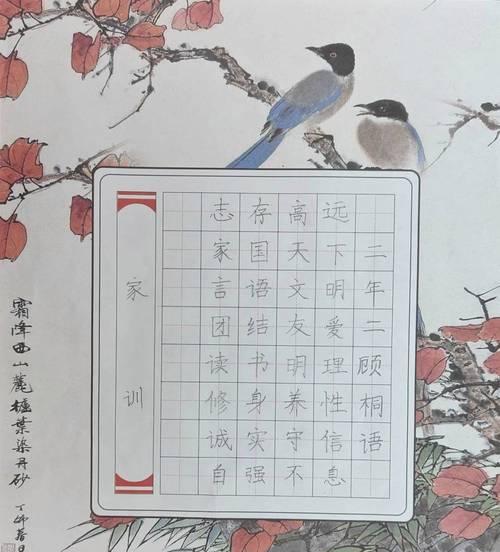 家训
志存高远
家国天下
言语文明
团结友爱
读书明理
修身养性
诚实守信
自强不息
二年二顾桐语
霜降西山麓櫨葉染丹砂